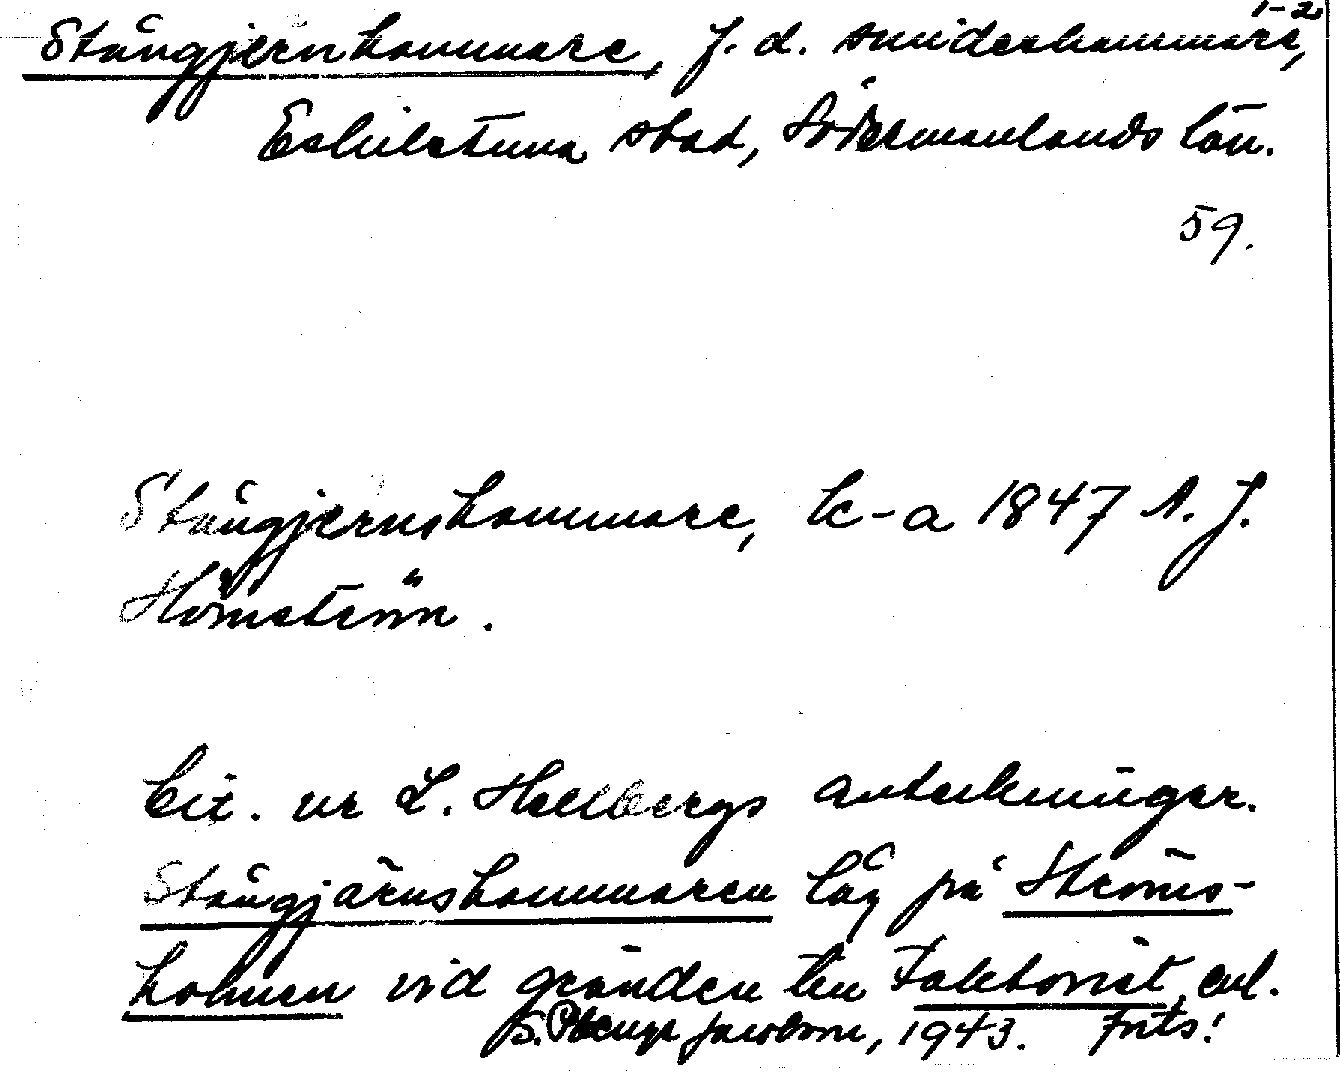 1-2
Stångjernhammare, f. d. smideshammare,
Eskilstuna stad, Södermanlands län.
59.
Stångjernshammare, k-a 1847 A. J.
Hörnstein.
Cit. ur L. Hellbergs anteckningar.
Stångjärnshammaren låg på Ströms-
holmen vid gränden till Faktoriet, enl.
S. Jacobson, 1943. Forts!